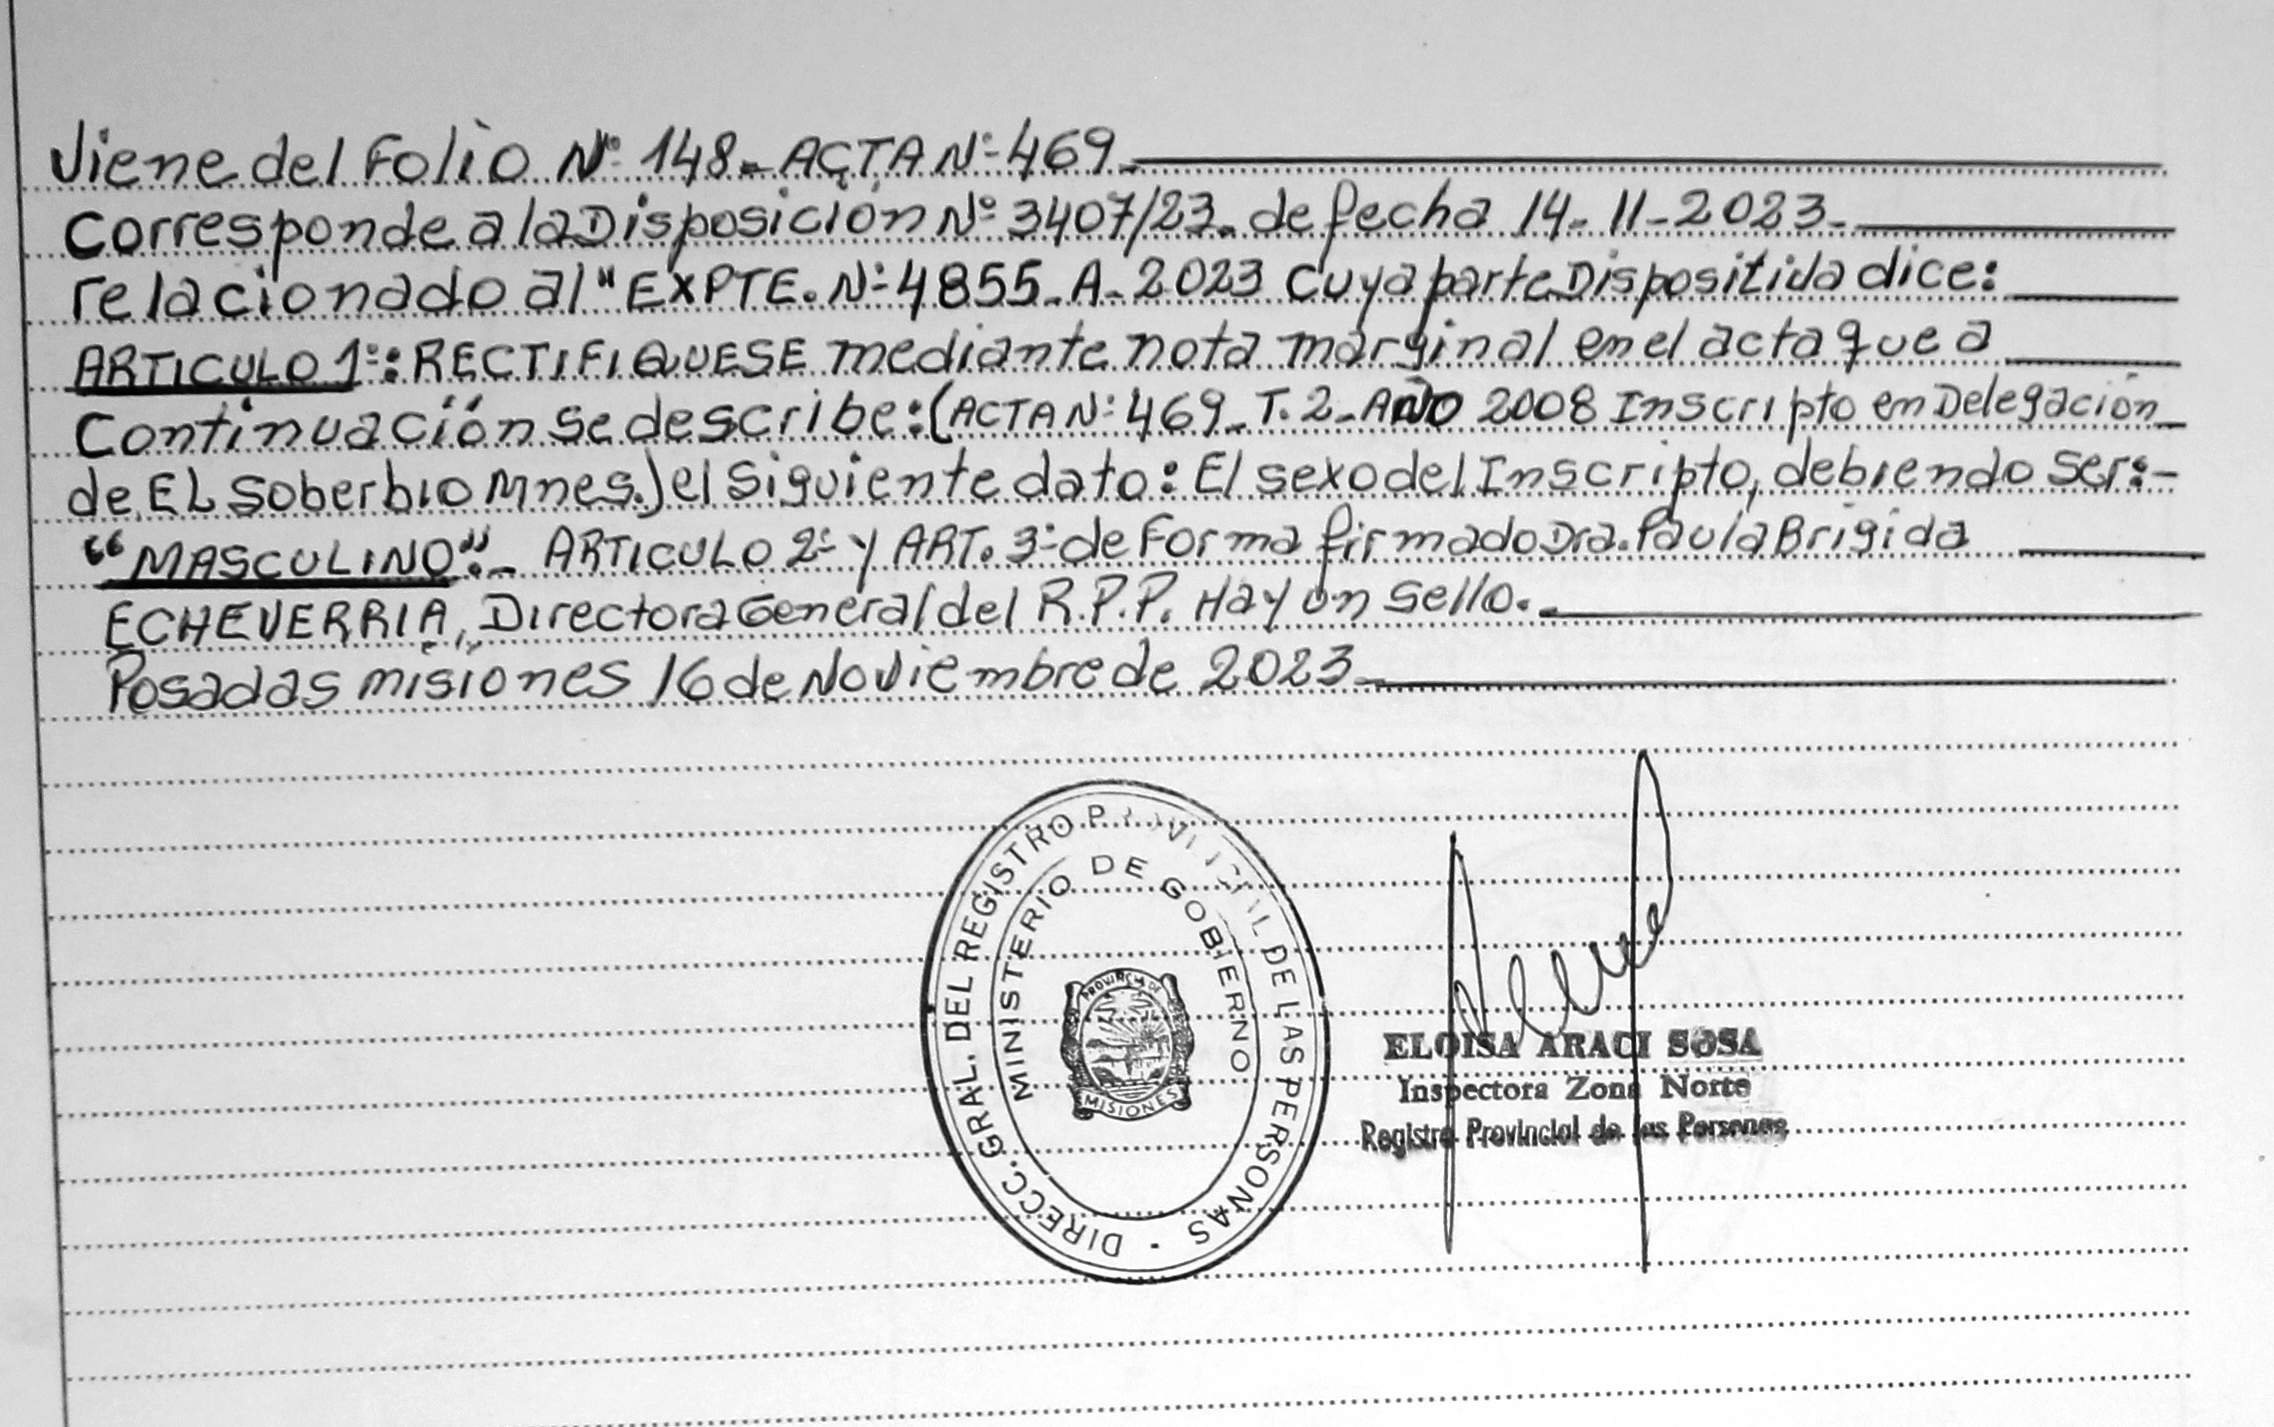 Viene del Folio Nº 148- ACTA Nº 469-
Corresponde a la Disposición Nº 3407/23- de fecha 14-11-2023-
relacionado al "EXPTE. Nº 4855-A-2023 Cuya parte Dispositiva dice:
ARTICULO 1º: RECTIFIQUESE mediante nota marginal en el acta que a
Continuación se describe: (ACTA Nº 469-T.2-AÑO 2008 Inscripto en Delegación
de EL Soberbio Mnes.) el siguiente dato: El sexo del Inscripto, debiendo ser:-
"MASCULINO".- ARTICULO 2º Y ART. 3º de Forma firmado Dra. Paula Brigida
ECHEVERRIA, Directora General del R.P.P. Hay un sello.-
Posadas misiones 16 de Noviembre de 2023-
DIRECC. GRAL. DEL REGISTRO PROVINCIAL DE LAS PERSONAS -
MINISTERIO DE GOBIERNO
PROVINCIA DE
MISIONES
ELOISA ARACI SOSA
Inspectora Zona Norte
Registro Provincial de las Personas